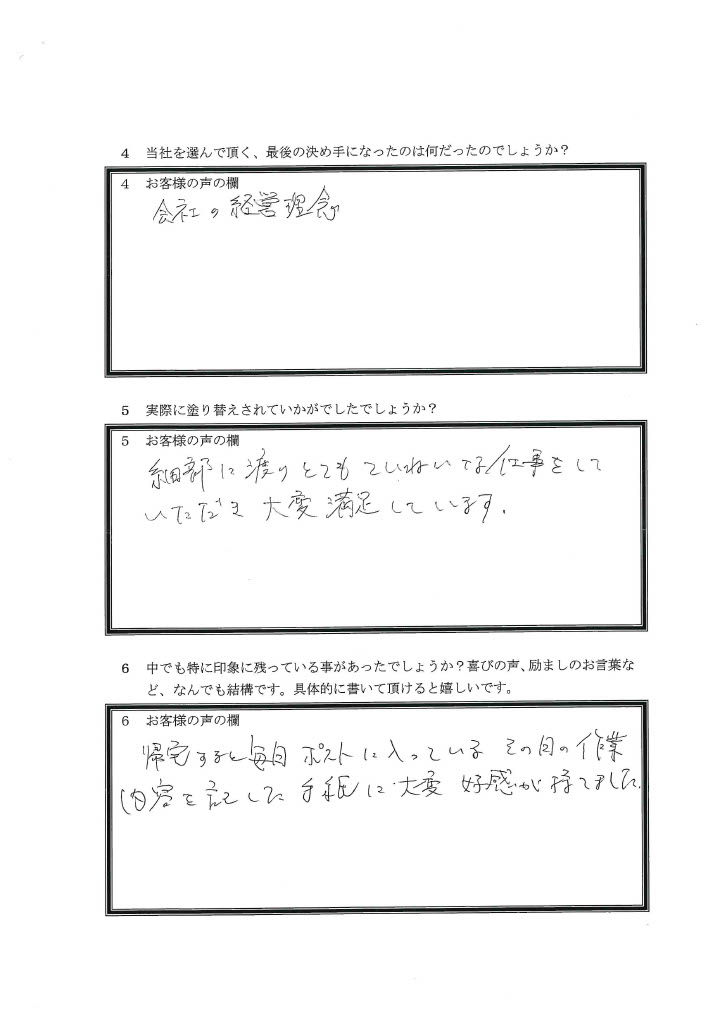 4 当社を選んで頂く、最後の決め手になったのは何だったのでしょうか？
4 お客様の声の欄
会社の経営理念
5 実際に塗り替えされていかがでしたでしょうか？
5 お客様の声の欄
細部に渡りとてもていねいな仕事をして
いただき大変満足しています.
6 中でも特に印象に残っている事があったでしょうか？喜びの声、励ましのお言葉な
ど、なんでも結構です。具体的に書いて頂けると嬉しいです。
6 お客様の声の欄
帰宅すると毎日ポストに入っているその日の作業
内容を記した手紙に大変好感が持てました.